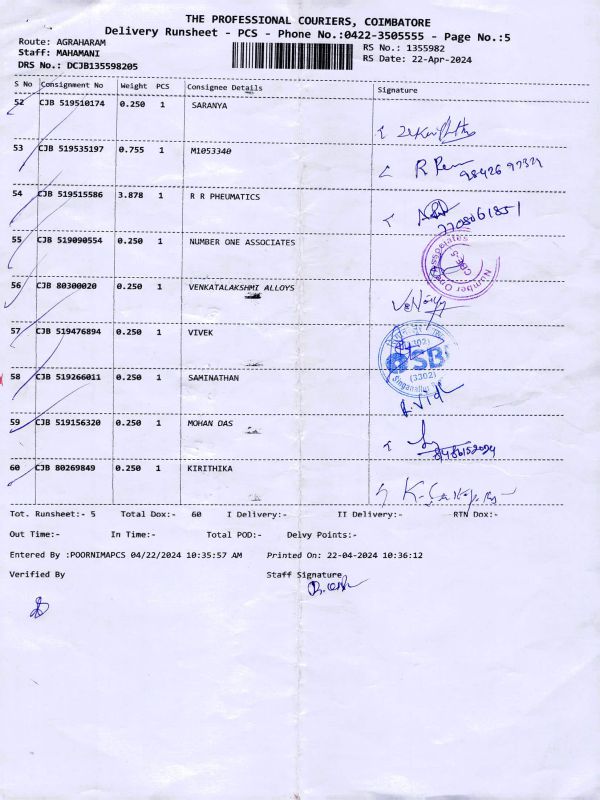 THE PROFESSIONAL COURIERS, COIMBATORE
Delivery Runsheet - PCS - Phone No.:0422-3505555 - Page No.:5
Route: AGRAHARAM
Staff: MAHAMANI
DRS No.: DCJB135598205
RS No.: 1355982
RS Date: 22-Apr-2024
S No Consignment No Weight PCS Consignee Details Signature
52 CJB 519510174 0.250 1 SARANYA
53 CJB 519535197 0.755 1 M1053340
54 CJB 519515586 3.878 1 R R PHEUMATICS
7708061851
55 CJB 519090554 0.250 1 NUMBER ONE ASSOCIATES
Number One Associates
CBE-5
56 CJB 80300020 0.250 1 VENKATALAKSHMI ALLOYS
57 CJB 519476894 0.250 1 VIVEK
(3302)
SBI
(3302)
Singanallur
58 CJB 519266011 0.250 1 SAMINATHAN
59 CJB 519156320 0.250 1 MOHAN DAS
60 CJB 80269849 0.250 1 KIRITHIKA
Tot. Runsheet:- 5 Total Dox:- 60 I Delivery:- II Delivery:- RTN Dox:-
Out Time:- In Time:- Total POD:- Delvy Points:-
Entered By :POORNIMAPCS 04/22/2024 10:35:57 AM Printed On: 22-04-2024 10:36:12
Verified By Staff Signature